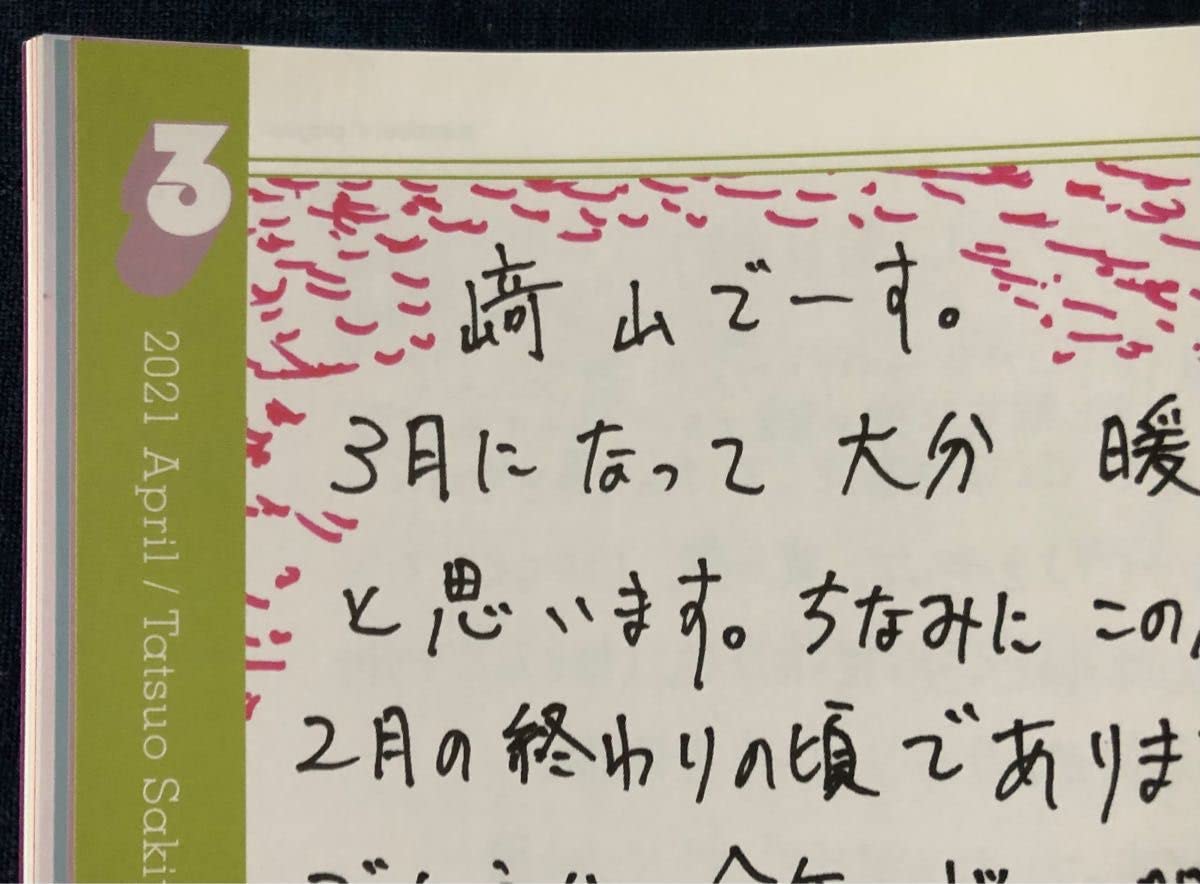 3
2021 April / Tatsuo Saki
﨑山でーす。
3月になって 大分 暖
と思います。ちなみに この
2月の終わりの頃であります